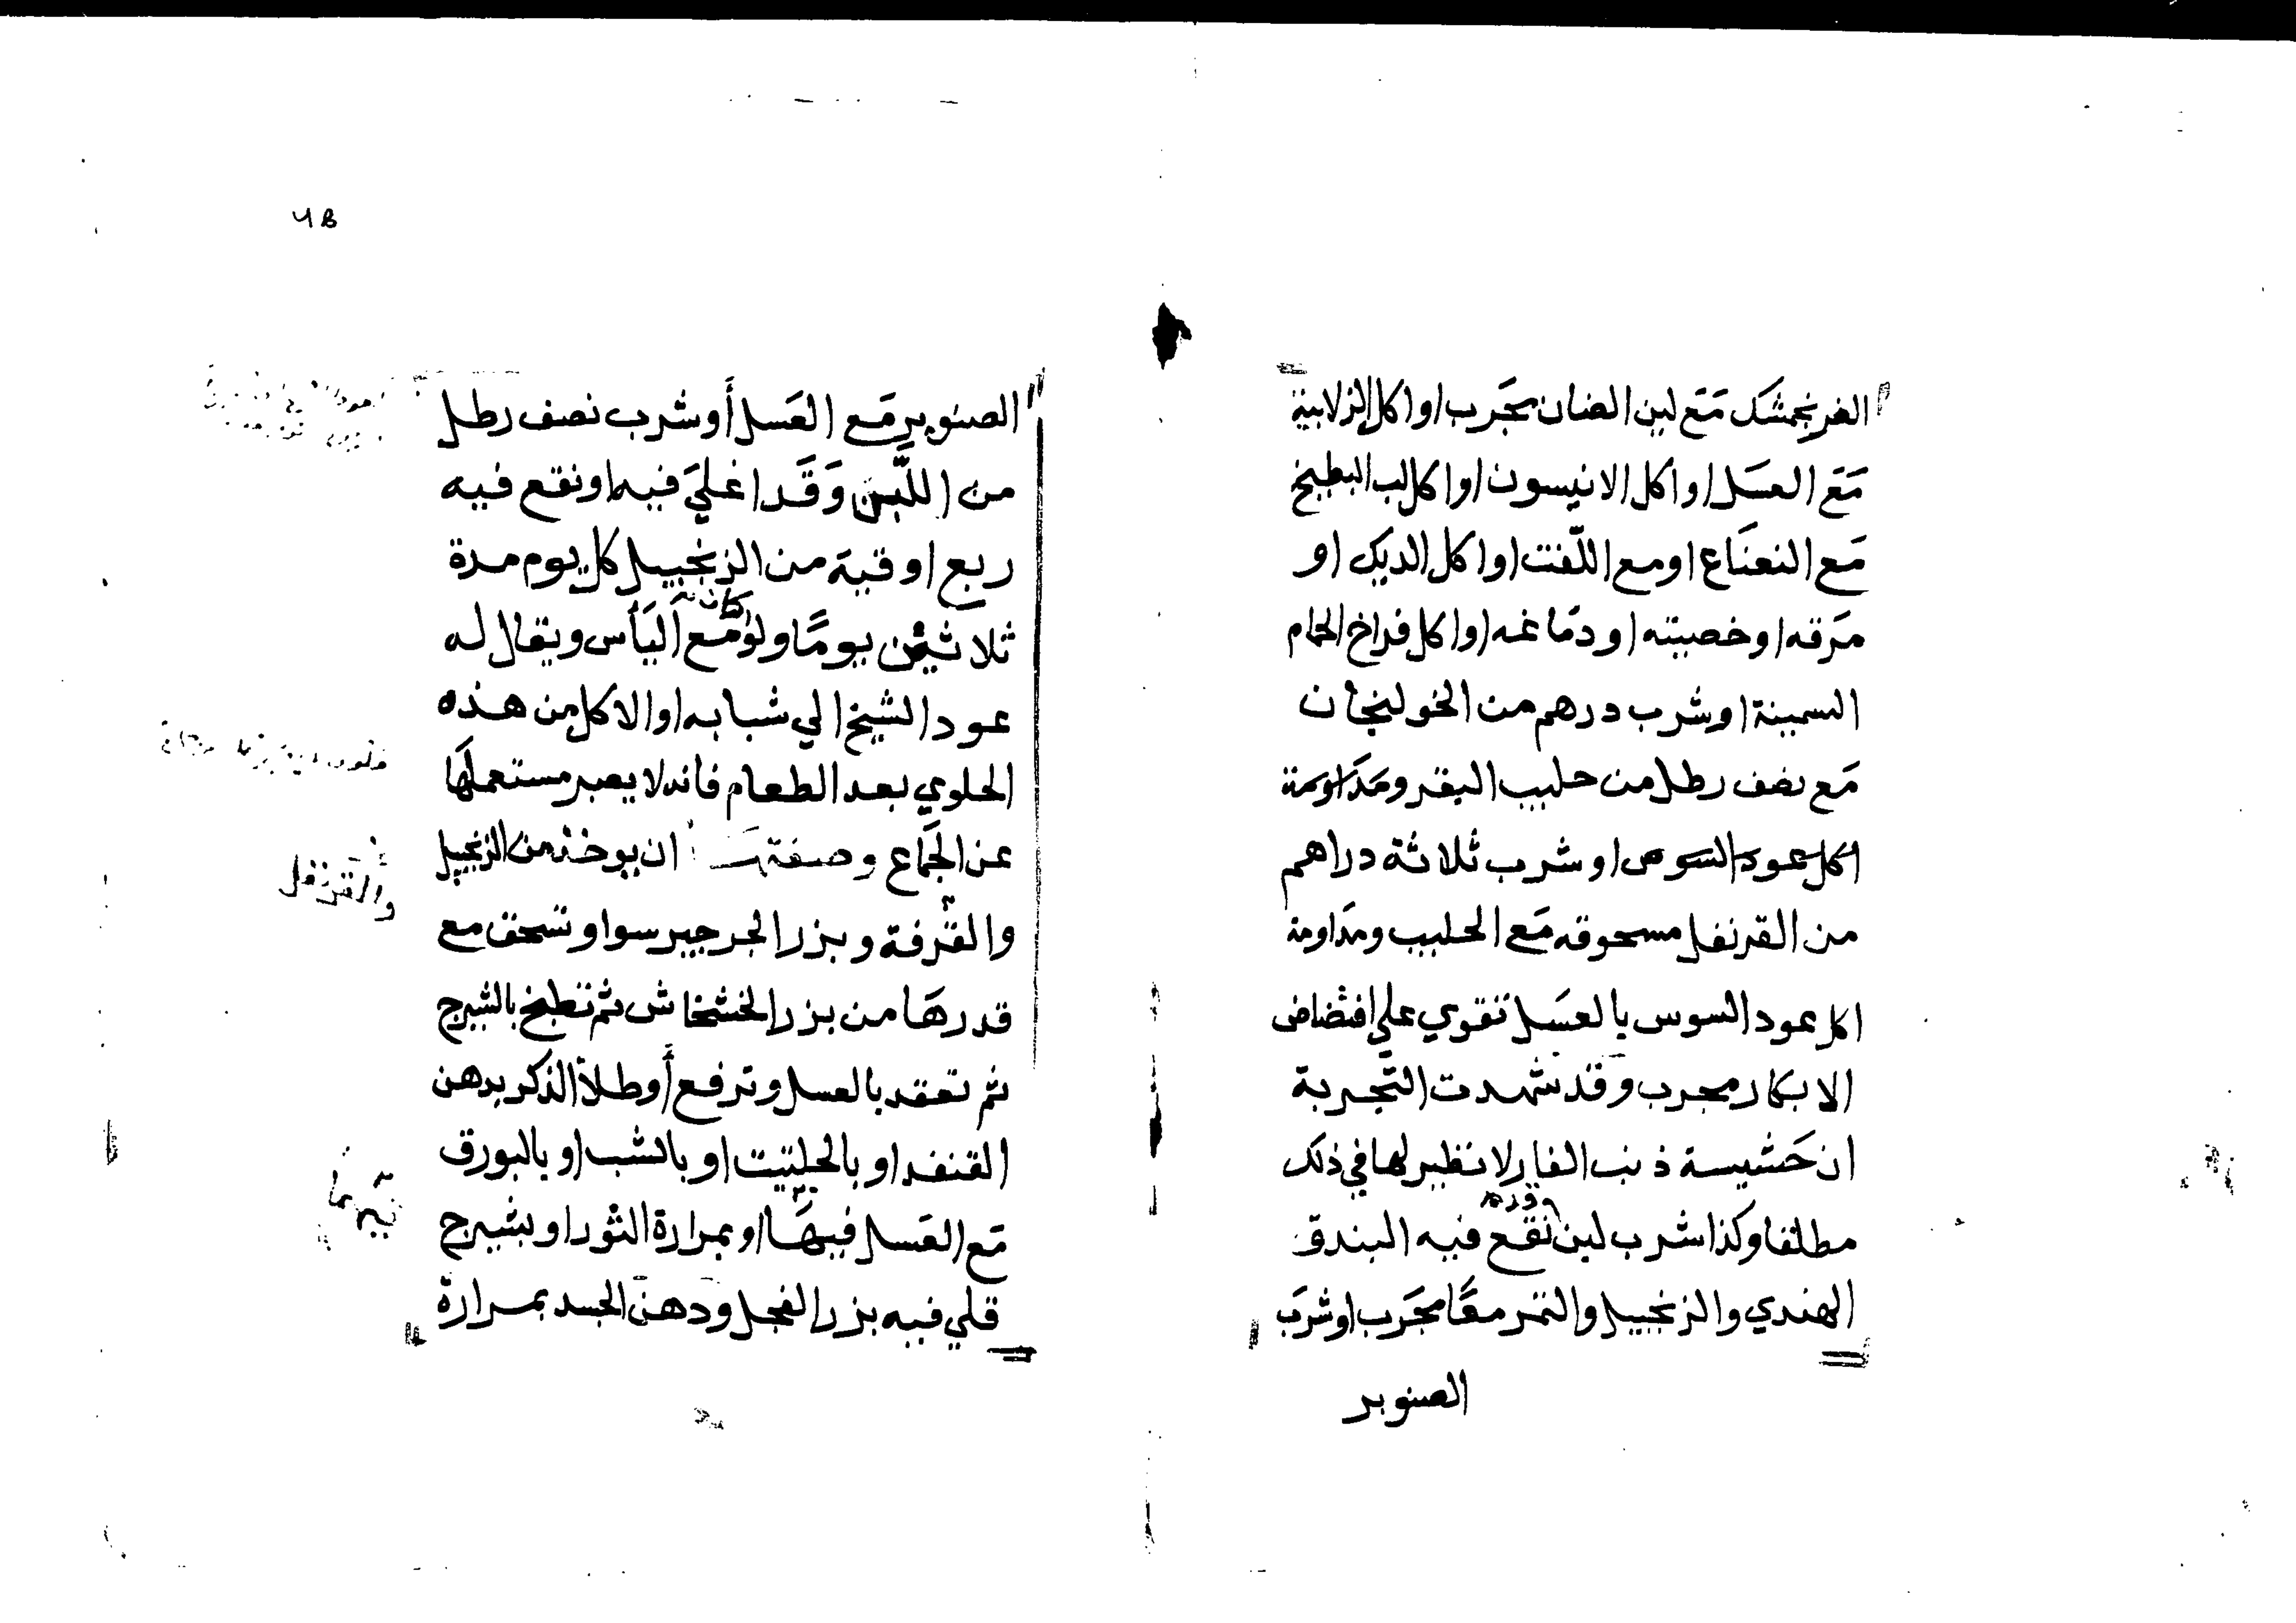 الفرنجمشك مَع لبن الضان مجَرب او اكل الزلابية
مَع العسَل او اكل الانيسون او اكل لب البطيخ
مَع النعنَاع او مع اللّفت او اكل الديك او
مَرقه او خصيته او دمَاغه او اكل فراخ الحمام
السمينة او شرب درهم من الخولنجان
مَع نصف رطل من حليب البقر ومَداومة
اكل عود السوس او شرب ثلاثة دراهم
من القرنفل مسحوقه مَع الحليب ومدَاومة
اكل عود السوس بالعسَل تقوي علي افتضاض
الابكار مجرب وقد شهدت التّجربة
ان حَشيسة ذنب الفار لا نظير لها في ذلك
مطلقا وكذا شرب لبن نقع فيه البندق
الهندي والزنجبيل والتمر معًا مجَرب او شرَب
الصنوبر
٤٨
الصنوبر مَع العَسل أو شرب نصف رطل
من اللّبن وَقَد اغليَ فيه او نقع فيه
ربع اوقية من الزنجبيل كل يوم مدة
ثلاثين يومًا ولو كان مَع اليَأس ويقال له
عود الشيخ الي شبابه او الاكل من هذه
الحلوي بعد الطعام فانه لا يصبر مستعملهَا
عن الجَماع وصفتها ان يوخذ من الزنجبيل
والقرنفل
والقرفة وبزر الجرجير سوا وتسحق مع
قدرهَا من بزر الخشخاش ثم تطبخ بالشيرج
ثم تعقد بالعسل وترفع أو طلأ الذكر بدهن
القنفد او بالحلتيت او بالشب او بالبورق
مَع العَسل فيهَا او بمرارة الثور او بشيرج
قلي فيه بزر الفجل ودهن الجسد بمرارة